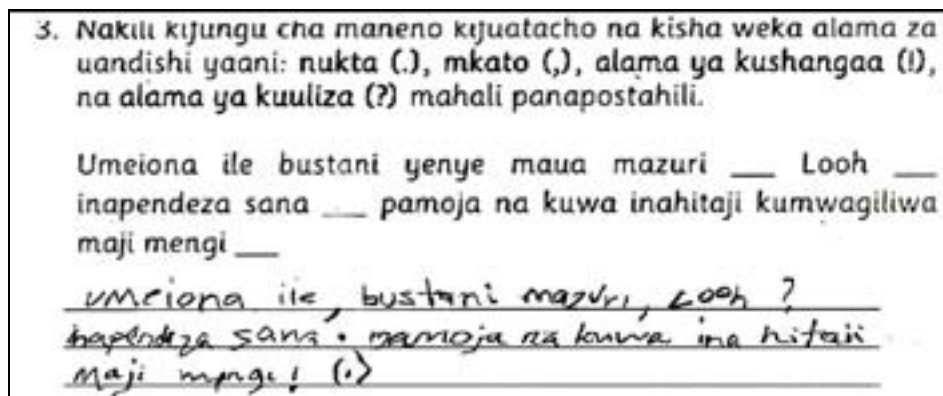 3. Nakili kijungu cha maneno kijuatacho na kisha weka alama za
uandishi yaani: nukta (.), mkato (,), alama ya kushangaa (!),
na alama ya kuuliza (?) mahali panapostahili.
Umeiona ile bustani yenye maua mazuri ___ Looh ___
inapendeza sana ___ pamoja na kuwa inahitaji kumwagiliwa
maji mengi ___
umeiona ile, bustani mazuri, Looh ?
inapendeza sana . mamoja na kuwa ina hitaji
Maji mengi ! (.)